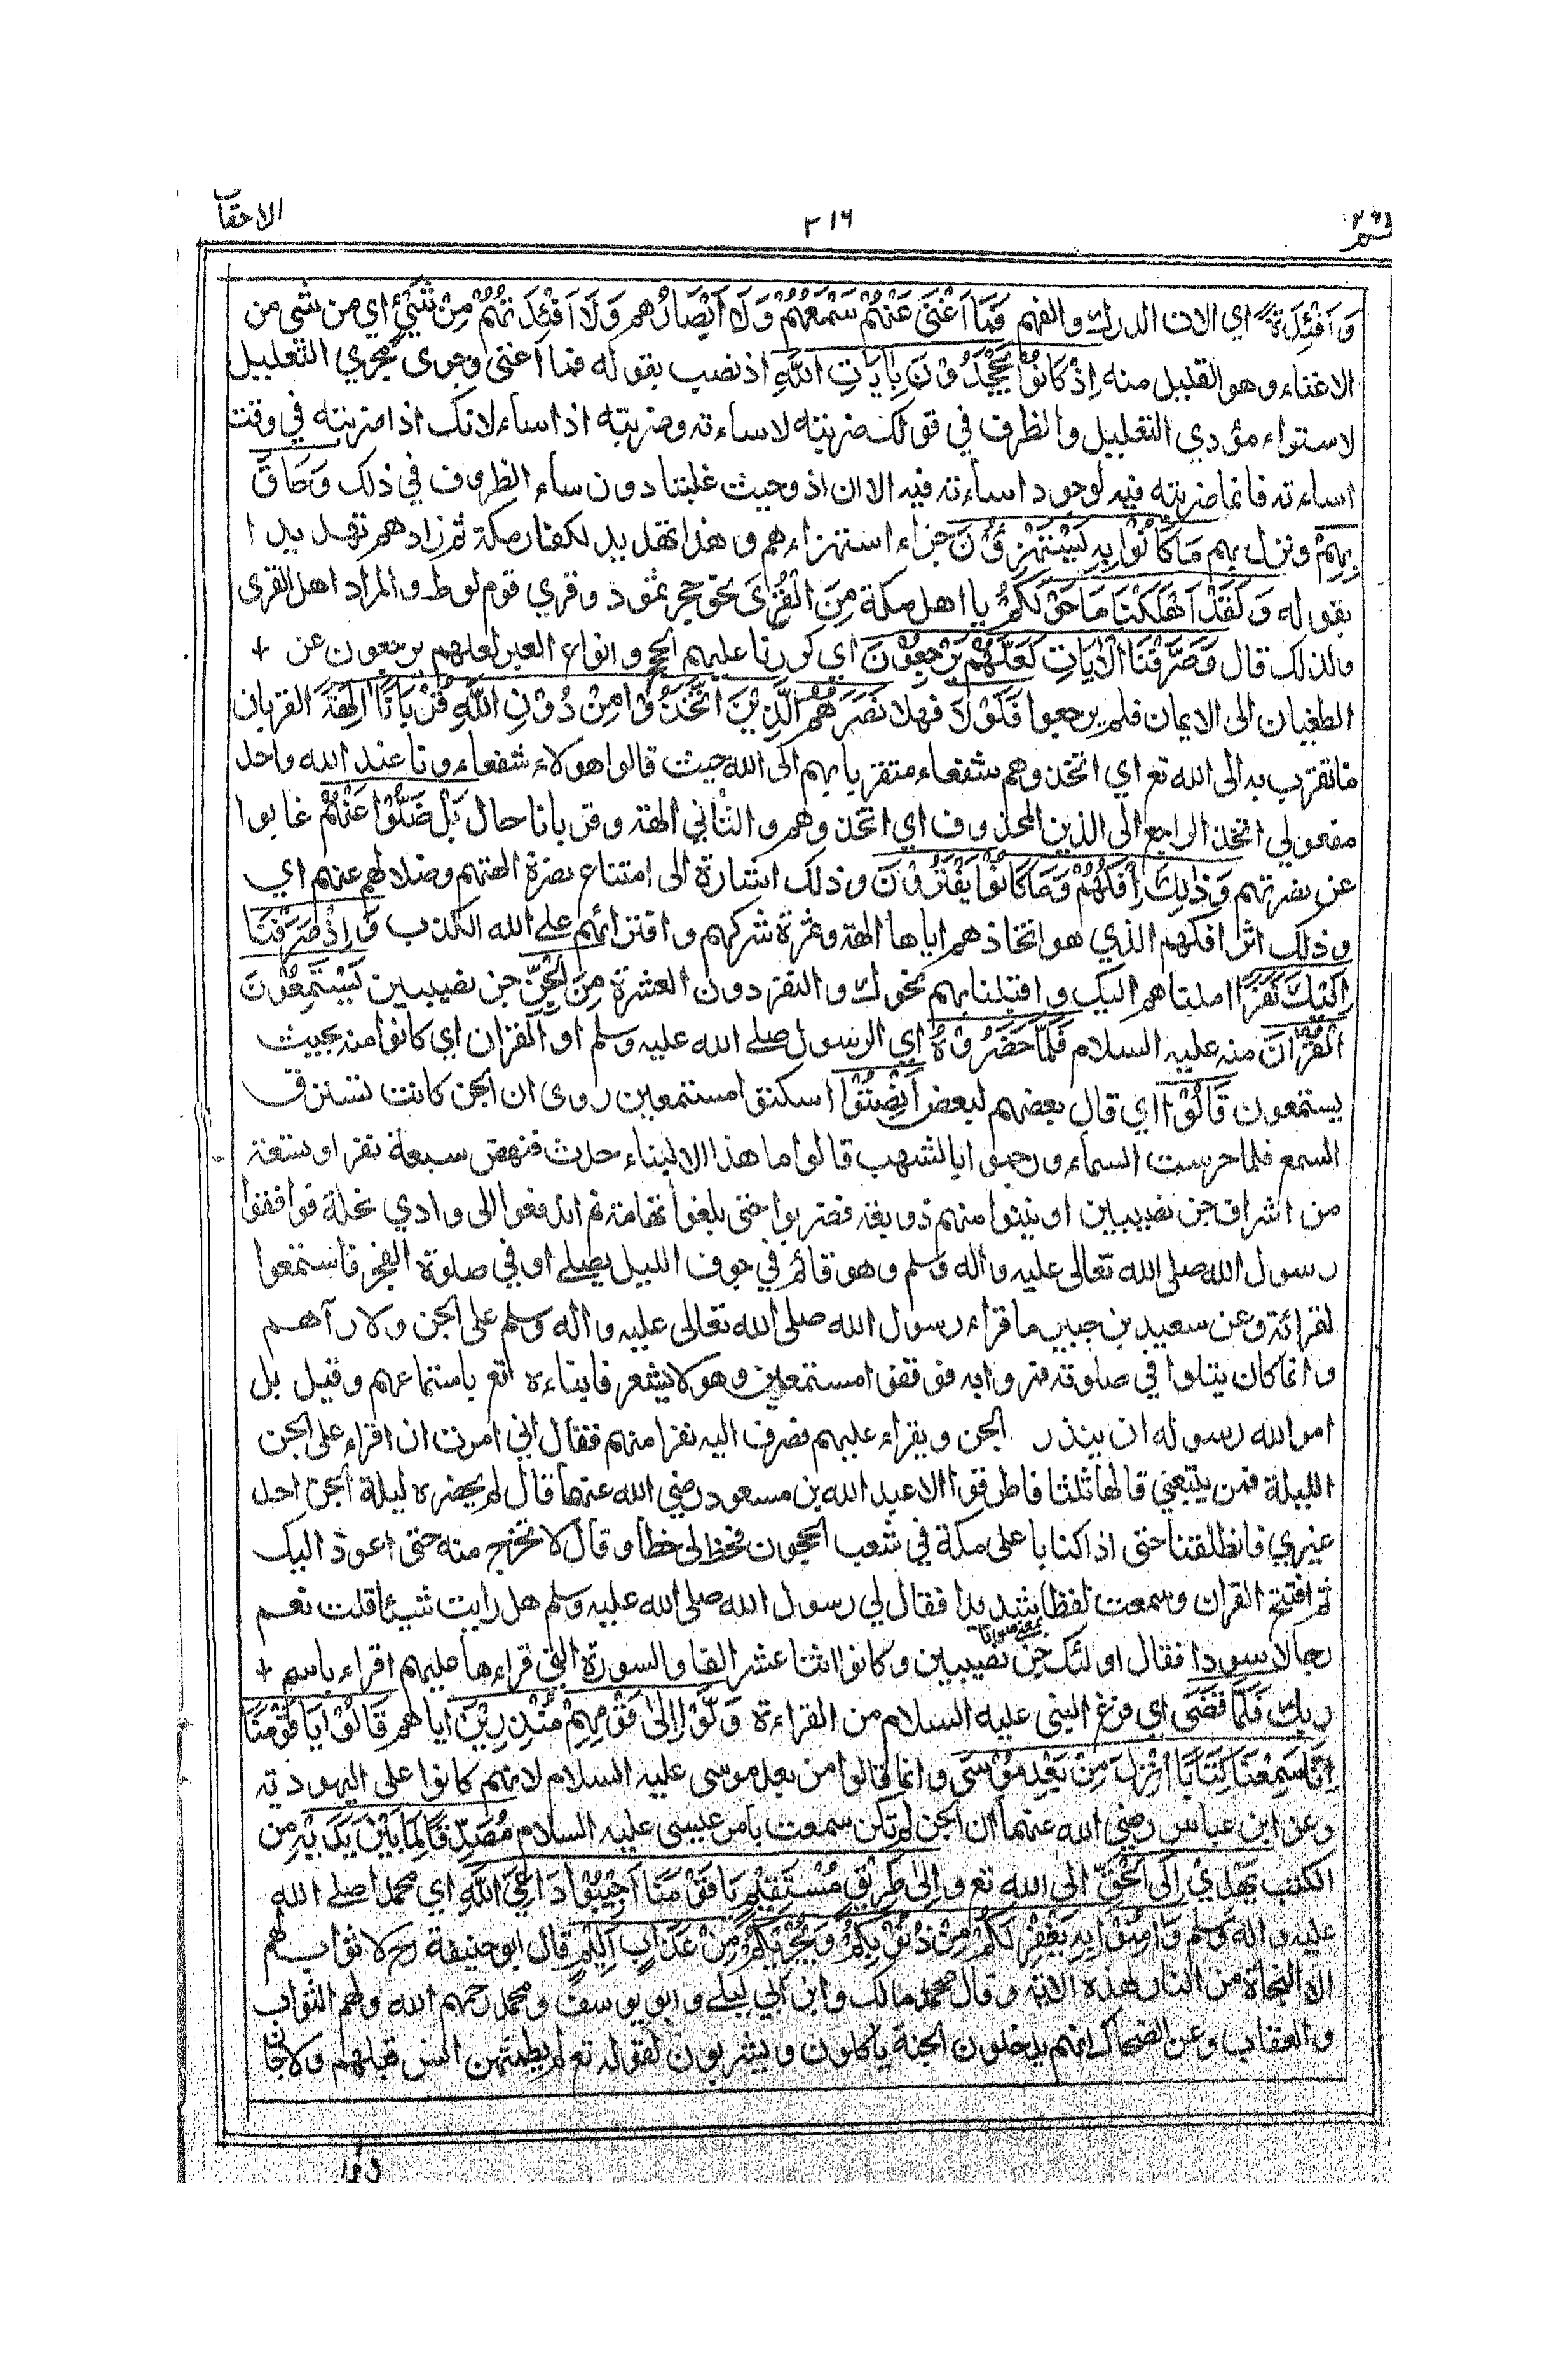 الاحقاف
٢١٦
حم ٢٦
وَاَفْئِدَةً اي الات الدرك والفهم فَمَا اَغْنٰى عَنْهُمْ سَمْعُهُمْ وَلَا اَبْصَارُهم وَلَا اَفْئِدَتُهُمْ مِنْ شَيْءٍ اي من شي من
الاغناء وهو القليل منه اِذْ كَانُوْا يَجْحَدُوْنَ بِاٰيَاتِ اللّٰهِ اذ نصب بقوله فما اغنى وجرى مجري التعليل
لاستواء مؤدي التعليل والظرف في قولك ضربته لاساءته وضربته اذ اساء لانك اذا ضربته في وقت
اساءته فانما ضربته فيه لوجود اساءته فيه الا ان اذ وحيث غلبتا دون ساءر الظروف في ذلك وَحَاقَ
بِهِمْ ونزل بهم مَا كَانُوْا بِهٖ يَسْتَهْزِؤُنَ جزاء استهزاءهم وهذا تهديد لكفار مكة ثم زادهم تهديدا
بقوله وَلَقَدْ اَهْلَكْنَا مَا حَوْلَكُمْ يا اهل مكة مِنَ الْقُرٰى نحو حجر ثمود وقري قوم لوط والمراد اهل القرى
ولذلك قال وَصَرَّفْنَا الْاٰيَاتِ لَعَلَّهُمْ يَرْجِعُوْنَ اي كررنا عليهم الحجج وانواع العبر لعلهم يرجعون عن +
الطغيان الى الايمان فلم يرجعوا فَلَوْلَا فهلا نَصَرَهُمُ الَّذِيْنَ اتَّخَذُوْا مِنْ دُوْنِ اللّٰهِ قُرْبَانًا اٰلِهَةً القربان
ما تقرب به الى الله تع اي اتخذوهم شفعاء متقربا بهم الى الله حيث قالوا هولاء شفعاءونا عند الله واحد
مفعولي اتخذ الراجع الى الذين المحذوف اي اتخذوهم والثاني الهة وقربانا حال بَلْ ضَلُّوْا عَنْهُمْ غابوا
عن نصرتهم وَذٰلِكَ اِفْكُهُمْ وَمَا كَانُوْا يَفْتَرُوْنَ وذلك اشارة الى امتناع نصرة الهتهم وضلالهم عنهم اي
وذلك اثر افكهم الذي هو اتخاذهم اياها الهة وثمرة شركهم وافترائهم على الله الكذب وَاِذْ صَرَفْنَا
اِلَيْكَ نَفَرًا املناهم اليك واقبلنا بهم نحوك والنفر دون العشرة مِنَ الْجِنِّ جن نصيبين يَسْتَمِعُوْنَ
الْقُرْاٰنَ منه عليه السلام فَلَمَّا حَضَرُوْهُ اي الرسول صلى الله عليه وسلم او القران اي كانوا منه بحيث
يستمعون قَالُوْا اي قال بعضهم لبعض اَنْصِتُوْا اسكتوا مستمعين روى ان الجن كانت تسترق
السمع فلما حرست السماء ورجموا بالشهب قالوا ما هذا الا لنباء حدث فنهض سبعة نفر او تسعة
من اشراف جن نصيبين او نينوا منهم ذوبعة فضربوا حتى بلغوا تهامة ثم اندفعوا الى وادي نخلة فوافقوا
رسول الله صلى الله تعالى عليه واله وسلم وهو قائم في جوف الليل يصلي او في صلوة الفجر فاستمعوا
لقرائته وعن سعيد بن جبير ما قراء رسول الله صلى الله تعالى عليه واله وسلم على الجن ولا رآهم
وانما كان يتلوا في صلوته فمروا به فوقفوا مستمعين وهو لا يشعر فانباءه الله تع باستماعهم وقيل بل
امر الله رسوله ان ينذر الجن ويقراء عليهم فصرف اليه نفرا منهم فقال اني امرت ان اقراء على الجن
الليلة فمن يتبعني قالها ثلثا فاطرقوا الا عبد الله بن مسعود رضي الله عنهما قال لم يحضره ليلة الجن احد
غيري فانطلقنا حتى اذا كنا باعلى مكة في شعب الحجون فخط لي خطا وقال لا تخرج منه حتى اعوذ اليك
ثم افتتح القران وسمعت لغطا شديدا فقال لي رسول الله صلى الله عليه وسلم هل رايت شيئا قلت نعم
رجالا سودا فقال اولئك جن نصيبين وكانوا اثنا عشر الفا والسورة التي قراءها عليهم اقراء باسم +
ربك فَلَمَّا قُضِيَ اي فرغ النبي عليه السلام من القراءة وَلَّوْا اِلٰى قَوْمِهِمْ مُنْذِرِيْنَ اياهم قَالُوْا يَا قَوْمَنَا
اِنَّا سَمِعْنَا كِتَابًا اُنْزِلَ مِنْ بَعْدِ مُوْسٰى وانما قالوا من بعد موسى عليه السلام لانهم كانوا على اليهودية
وعن ابن عباس رضي الله عنهما ان الجن لم تكن سمعت بامر عيسى عليه السلام مُصَدِّقًا لِمَا بَيْنَ يَدَيْهِ من
الكتب يَهْدِيْ اِلَى الْحَقِّ الى الله تع وَاِلٰى طَرِيْقٍ مُسْتَقِيْمٍ يَا قَوْمَنَا اَجِيْبُوْا دَاعِيَ اللّٰهِ اي محمدا صلى الله
عليه واله وسلم وَاٰمِنُوْا بِهٖ يَغْفِرْ لَكُمْ مِنْ ذُنُوْبِكُمْ وَيُجِرْكُمْ مِنْ عَذَابٍ اَلِيْمٍ قال ابو حنيفة رح لا ثواب لهم
الا النجاة من النار لهذه الاية وقال مالك وابن ابي ليلى وابو يوسف ومحمد رحمهم الله ولهم الثواب
والعقاب وعن الضحاك انهم يدخلون الجنة ياكلون ويشربون لقوله تع لم يطمثهن انس قبلهم ولا جان